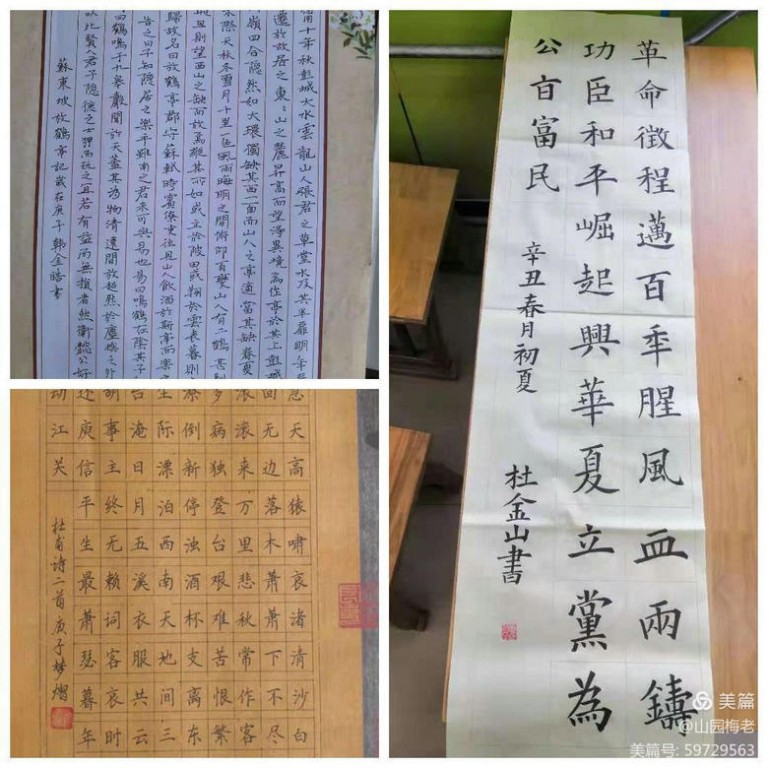 十年秋彭城大水雲龍山人張君之草堂水及其半扉明年
遷於故居之東東山之麓昇高而望得異境焉作亭於其上彭城
嶺四合隱然如大環獨缺其西一面而山人之亭適當其缺春夏
木際天秋冬雪月千里一色風雨晦明之間俯仰百變山人有二鶴甚
旦則望西山之缺而放焉縱其所如或立於陂田或翔於雲表暮則
歸故名曰放鶴亭郡守蘇軾時賓僚吏往見山人飲酒於斯亭而樂
告之曰子知隱居之樂乎雖南之君未可與易也易曰鳴鶴在陰其子
曰鶴鳴于九皋聲聞於天蓋其為物清遠閒放超然於塵埃之外
故比賢人君子隱德之士狎而玩之宜若有益而無損者然衛懿公好
蘇東坡放鶴亭記歲在庚子韓金皓書
急天高猿啸哀渚清沙白
回无边落木萧萧下不尽
滚滚来万里悲秋常作客
多病独登台艰难苦恨繁
潦倒新停浊酒杯支离东
尘际漂泊西南天地间三
台淹日月五溪衣服共云
胡事主终无赖词客哀时
还庾信平生最萧瑟暮年
动江关
杜甫诗二首庚子梦熠
革命徵程邁百年腥風血雨鑄
功臣和平崛起興華夏立黨為
公百富民
辛丑春月初夏
杜金山書
美篇
@山园梅老
美篇号: 59729563